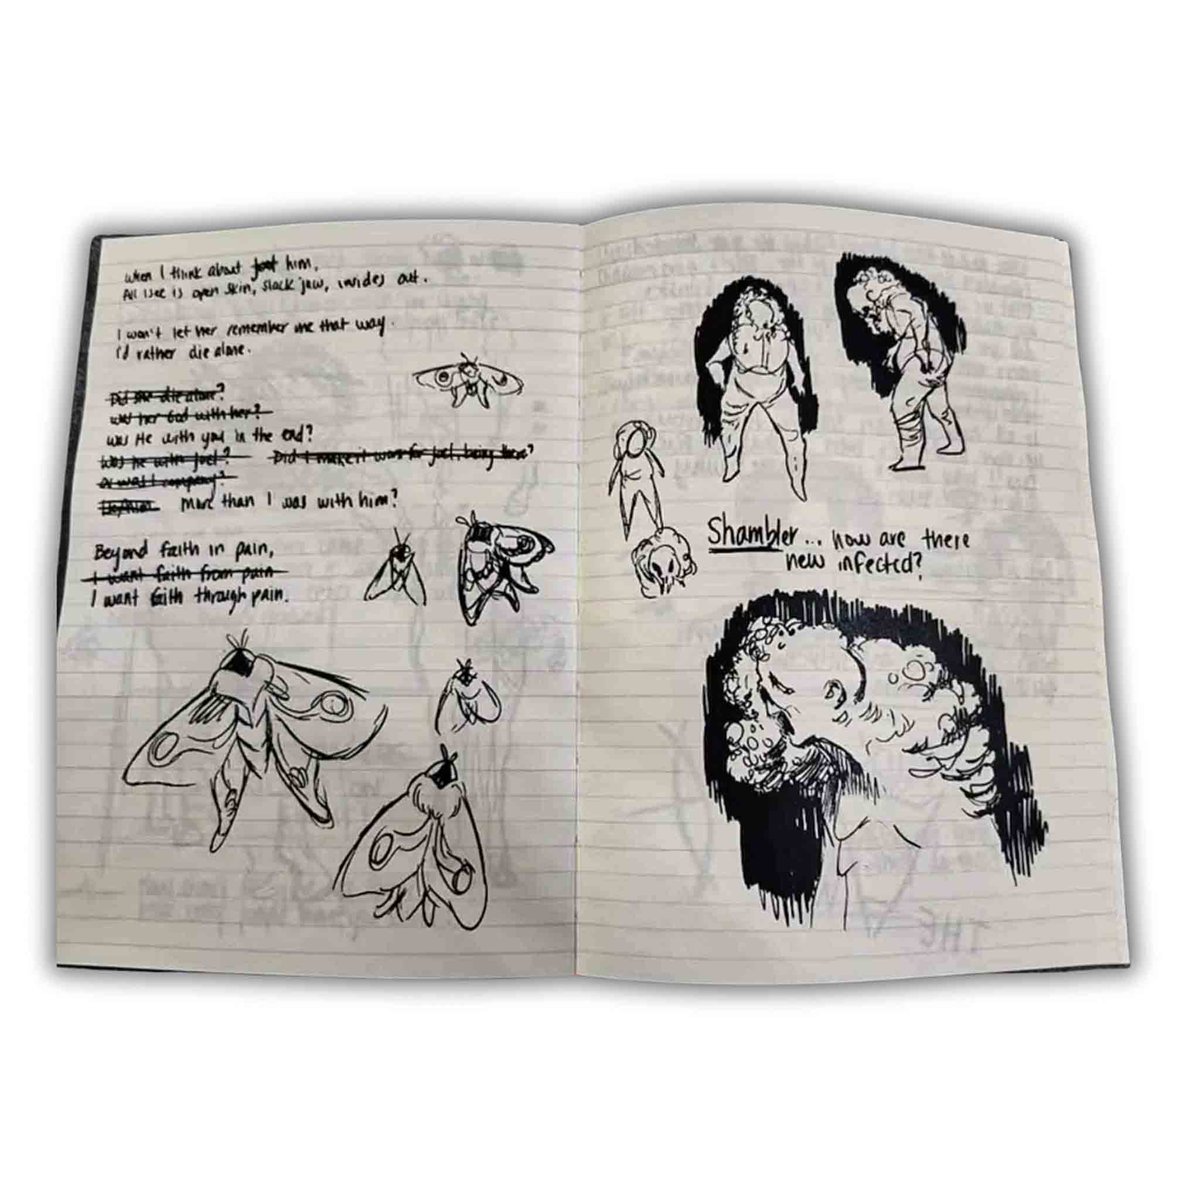 When I think about him,
All I see is open skin, slack jaw, insides out.
I won't let her remember me that way.
I'd rather die alone.
Did she die alone?
Was her God with her?
Was He with you in the end?
Was he with Joel? Did I make it worse for Joel, being there?
Or was I company?
More than I was with him?
Beyond faith in pain,
I want faith from pain
I want faith through pain.
Shambler... how are there
new infected?
THE